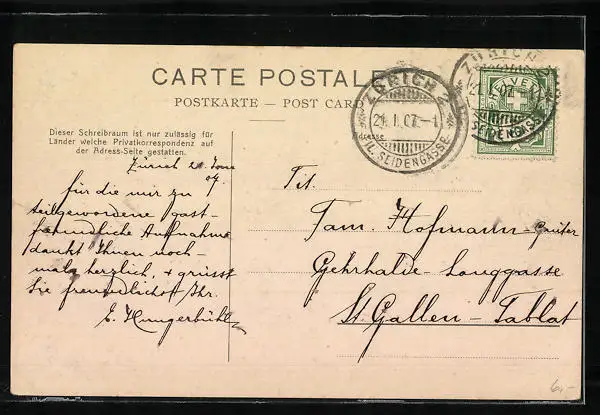 CARTE POSTALE
POSTKARTE – POST CARD
Dieser Schreibraum ist nur zulässig für
Länder welche Privatkorrespondenz auf
der Adress-Seite gestatten.
Adresse
ZÜRICH 2
21.I.07.-1
FIL. SEIDENGASSE
ZÜRICH
21.I.07.-1
SEIDENGASSE
HELVETIA
Zürich
07.
für die mir zu
teilgewordene gast-
freundliche Aufnahme
dankt Ihnen noch-
mals herzlich, + grüsst
Sie freundlichst Ihr.
E. Hungerbühler
Tit.
Fam. Hofmann-Grüter
Gehrhalde-Langgasse
St. Gallen-Tablat
6,-